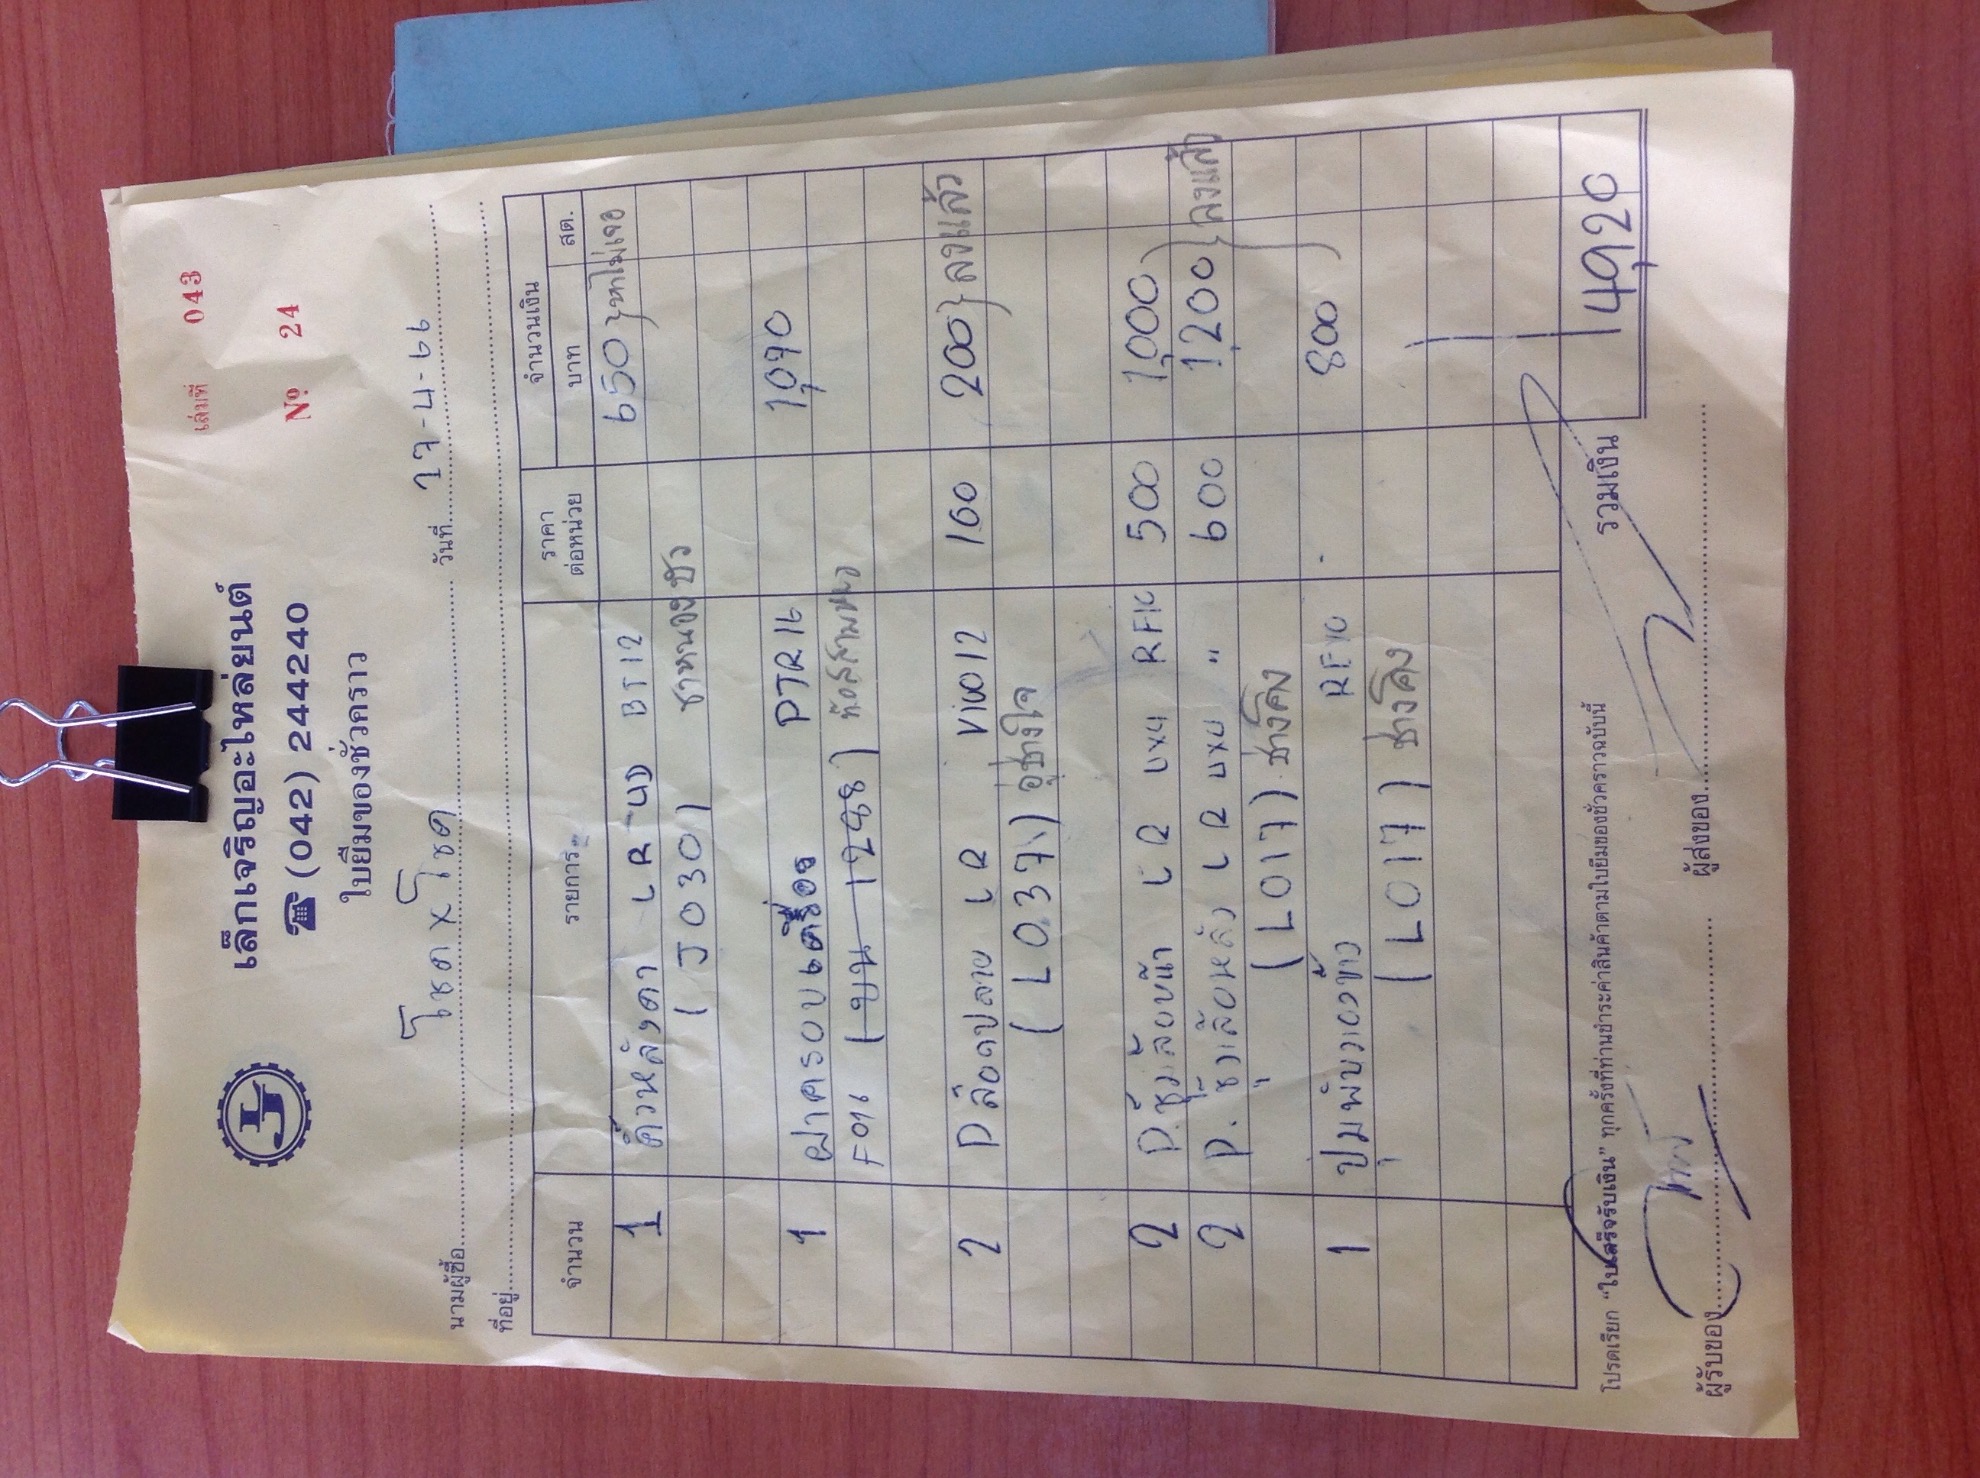 เล่มที่ 043
เล็กเจริญอะไหล่ยนต์
☎ (042) 244240
Nº 24
ใบยืมของชั่วคราว
นามผู้ซื้อ โชค x โชค วันที่ 17-4-66
ที่อยู่
จำนวน รายการ ราคาต่อหน่วย จำนวนเงิน
บาท สต.
1 คิ้วหลังคา LR 4D BT12 650 } หาไม่เจอ
( J0301
1 ฝาครอบเครื่อง PTR16 1,090
F096 (บน 1288)
2 ลือคปลาย LR VIGO12 100 200 } ลงแล้ว
( L037 ) อู่ช่างใจ
2 P. LR 4x4 RF10 500 1,000
2 P. LR 4x4 " 600 1,200 } ลงแล้ว
( L017 ) ช่างโค้ง
1 RF10 800
( L017 ) ช่างโค้ง
รวมเงิน 14,920
โปรดเรียก “ใบเสร็จรับเงิน” ทุกครั้งที่ท่านชำระค่าสินค้าตามใบยืมของชั่วคราวฉบับนี้
ผู้รับของ ผู้ส่งของ